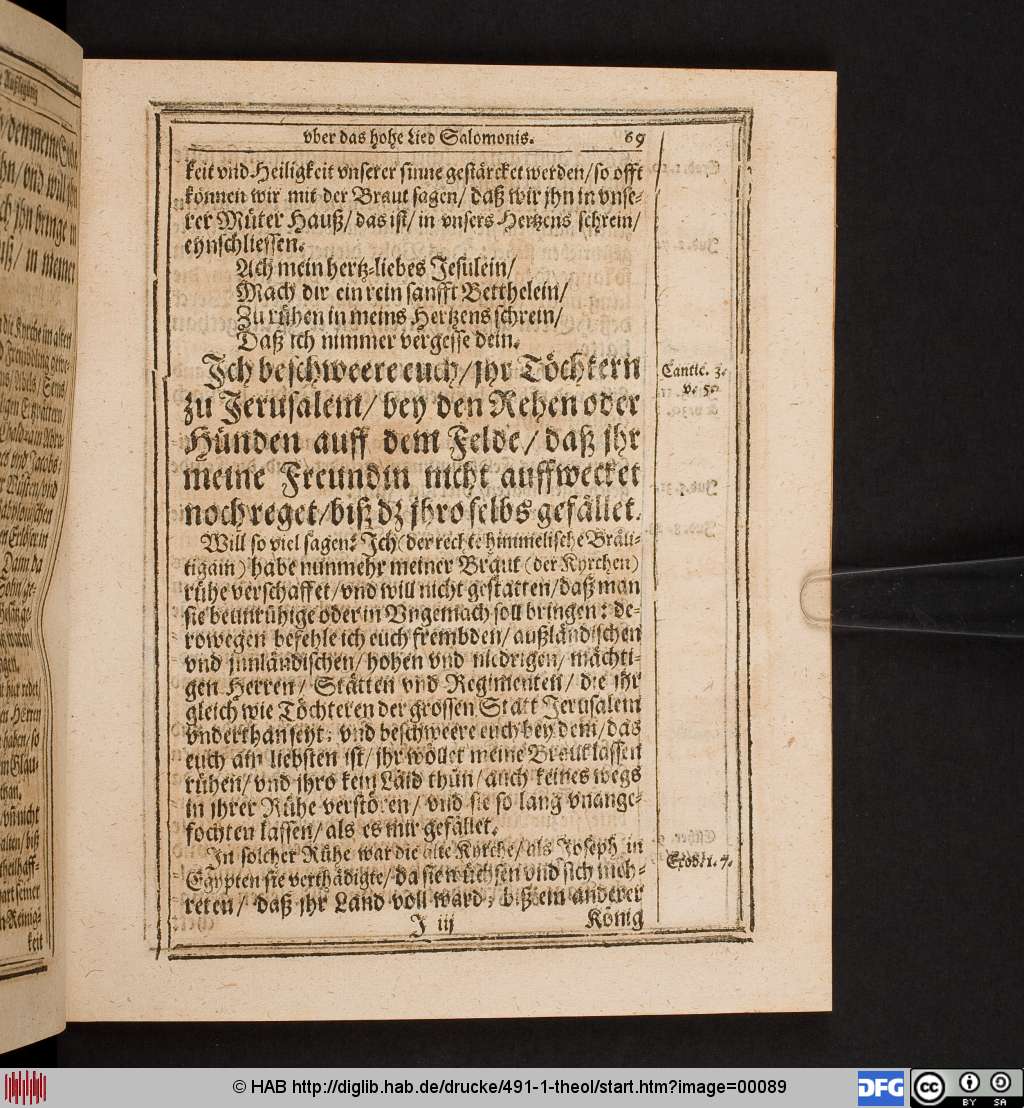 vber das hohe Lied Salomonis. 69
keit vnd Heiligkeit vnserer sinne gestärcket werden/ so offt
können wir mit der Braut sagen/ daß wir jhn in vnse-
rer Müter Hauß/ das ist/ in vnsers Hertzens schrein/
eynschliessen.
Ach mein hertz-liebes Jesulein/
Mach dir ein rein sanfft Betthelein/
Zu rühen in meins Hertzens schrein/
Daß ich nimmer vergesse dein.
Jch beschweere euch/ jhr Töchtern
zu Jerusalem/ bey den Rehen oder
Hünden auff dem Felde/ daß jhr
meine Freundin nicht auffwecket
noch reget/ biß dz jhro selbs gefället.
Cantic. 3.
v. 5.
Will so viel sagen: Jch (der rechte himmelische Bräu-
tigam) habe nunmehr meiner Braut (der Kyrchen)
rühe verschaffet/ vnd will nicht gestatten/ daß man
sie beunrühige oder in Vngemach soll bringen: de-
rowegen befehle ich euch frembden/ außländischen
vnd jnnländischen/ hohen vnd nidrigen/ mächti-
gen Herren/ Stätten vnd Regimenten/ die jhr
gleich wie Töchteren der grossen Statt Jerusalem
vnderthan seyt, vnd beschweere euch bey dem/ das
euch am liebsten ist/ jhr wöllet meine Braut lassen
rühen/ vnd jhro kein Läid thün/ auch keines wegs
in jhrer Rühe verstören/ vnd sie so lang vnange-
fochten lassen/ als es mir gefället.
Jn solcher Rühe war die alte Kyrche/ als Joseph in
Egypten sie verthädigte/ da sie wüchsen vnd sich meh-
reten/ daß jhr Land voll ward, biß ein anderer
Exod. 1. 7.
J iij König
© HAB http://diglib.hab.de/drucke/491-1-theol/start.htm?image=00089
DFG
cc BY SA